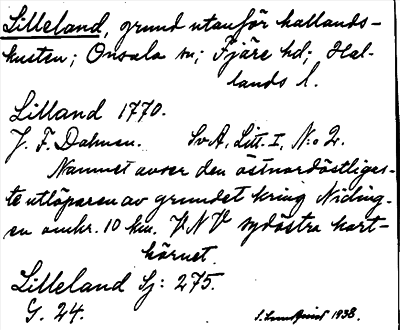 Lilleland, grund utanför hallands-
kusten; Onsala sn; Fjäre hd; Hal-
lands l.
Lilland 1770.
J. F. Dahman. SvA, Litt. I, N:o 2.
Namnet avser den ostnordöstligas-
te utlöparen av grundet kring Niding-
en omkr. 10 km. VNV sydöstra kart-
hörnet.
Lilleland Sj: 275.
G. 24.
1938.